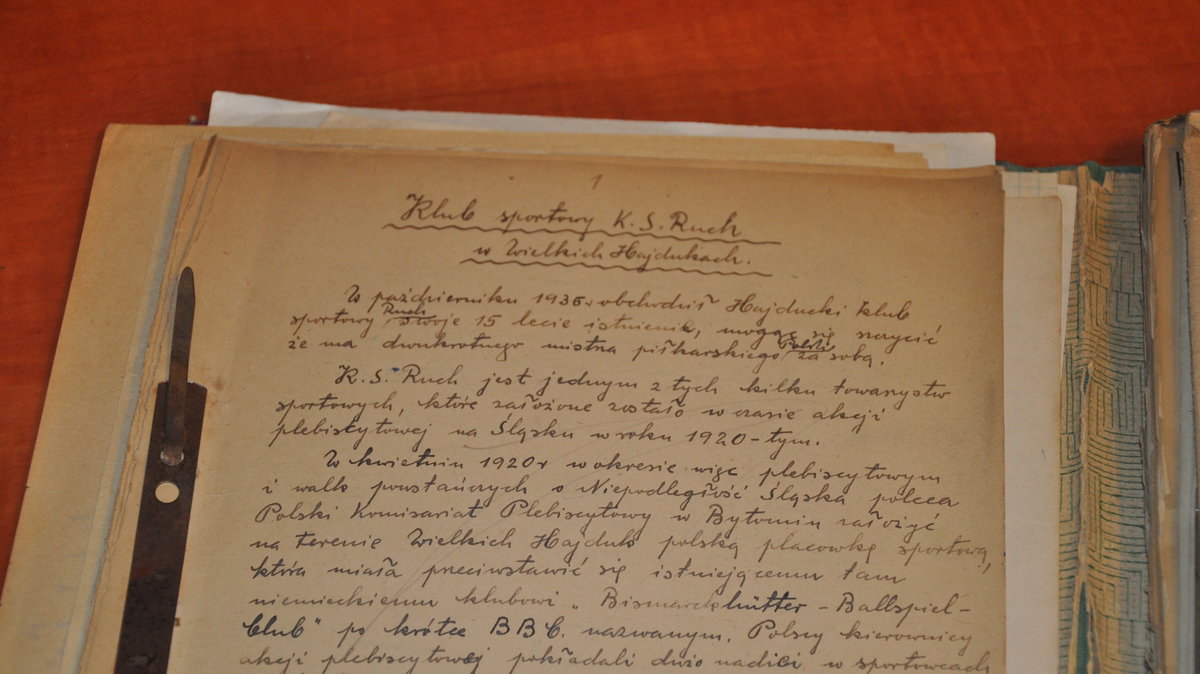 1
Klub sportowy K. S. Ruch
w Wielkich Hajdukach.
W październiku 1935 r obchodził Hajducki klub
sportowy Ruch swoje 15 lecie istnienia, mogąc się szczycić
że ma dwukrotnego mistrza piłkarskiego Polski za sobą.
K. S. Ruch jest jednym z tych kilku towarzystw
sportowych, które założone zostało w czasie akcji
plebiscytowej na Śląsku w roku 1920-tym.
W kwietniu 1920 r w okresie więc plebiscytowym
i walk powstańczych o Niepodległość Śląska poleca
Polski Komisariat Plebiscytowy w Bytomiu założyć
na terenie Wielkich Hajduk polską placówkę sportową,
która miała przeciwstawić się istniejącemu tam
niemieckiemu klubowi „Bismarckhütter - Ballspiel-
Club" po krótce BBC. nazwanym. Polscy kierownicy
akcji plebiscytowej pokładali dużo nadziei w sportowcach